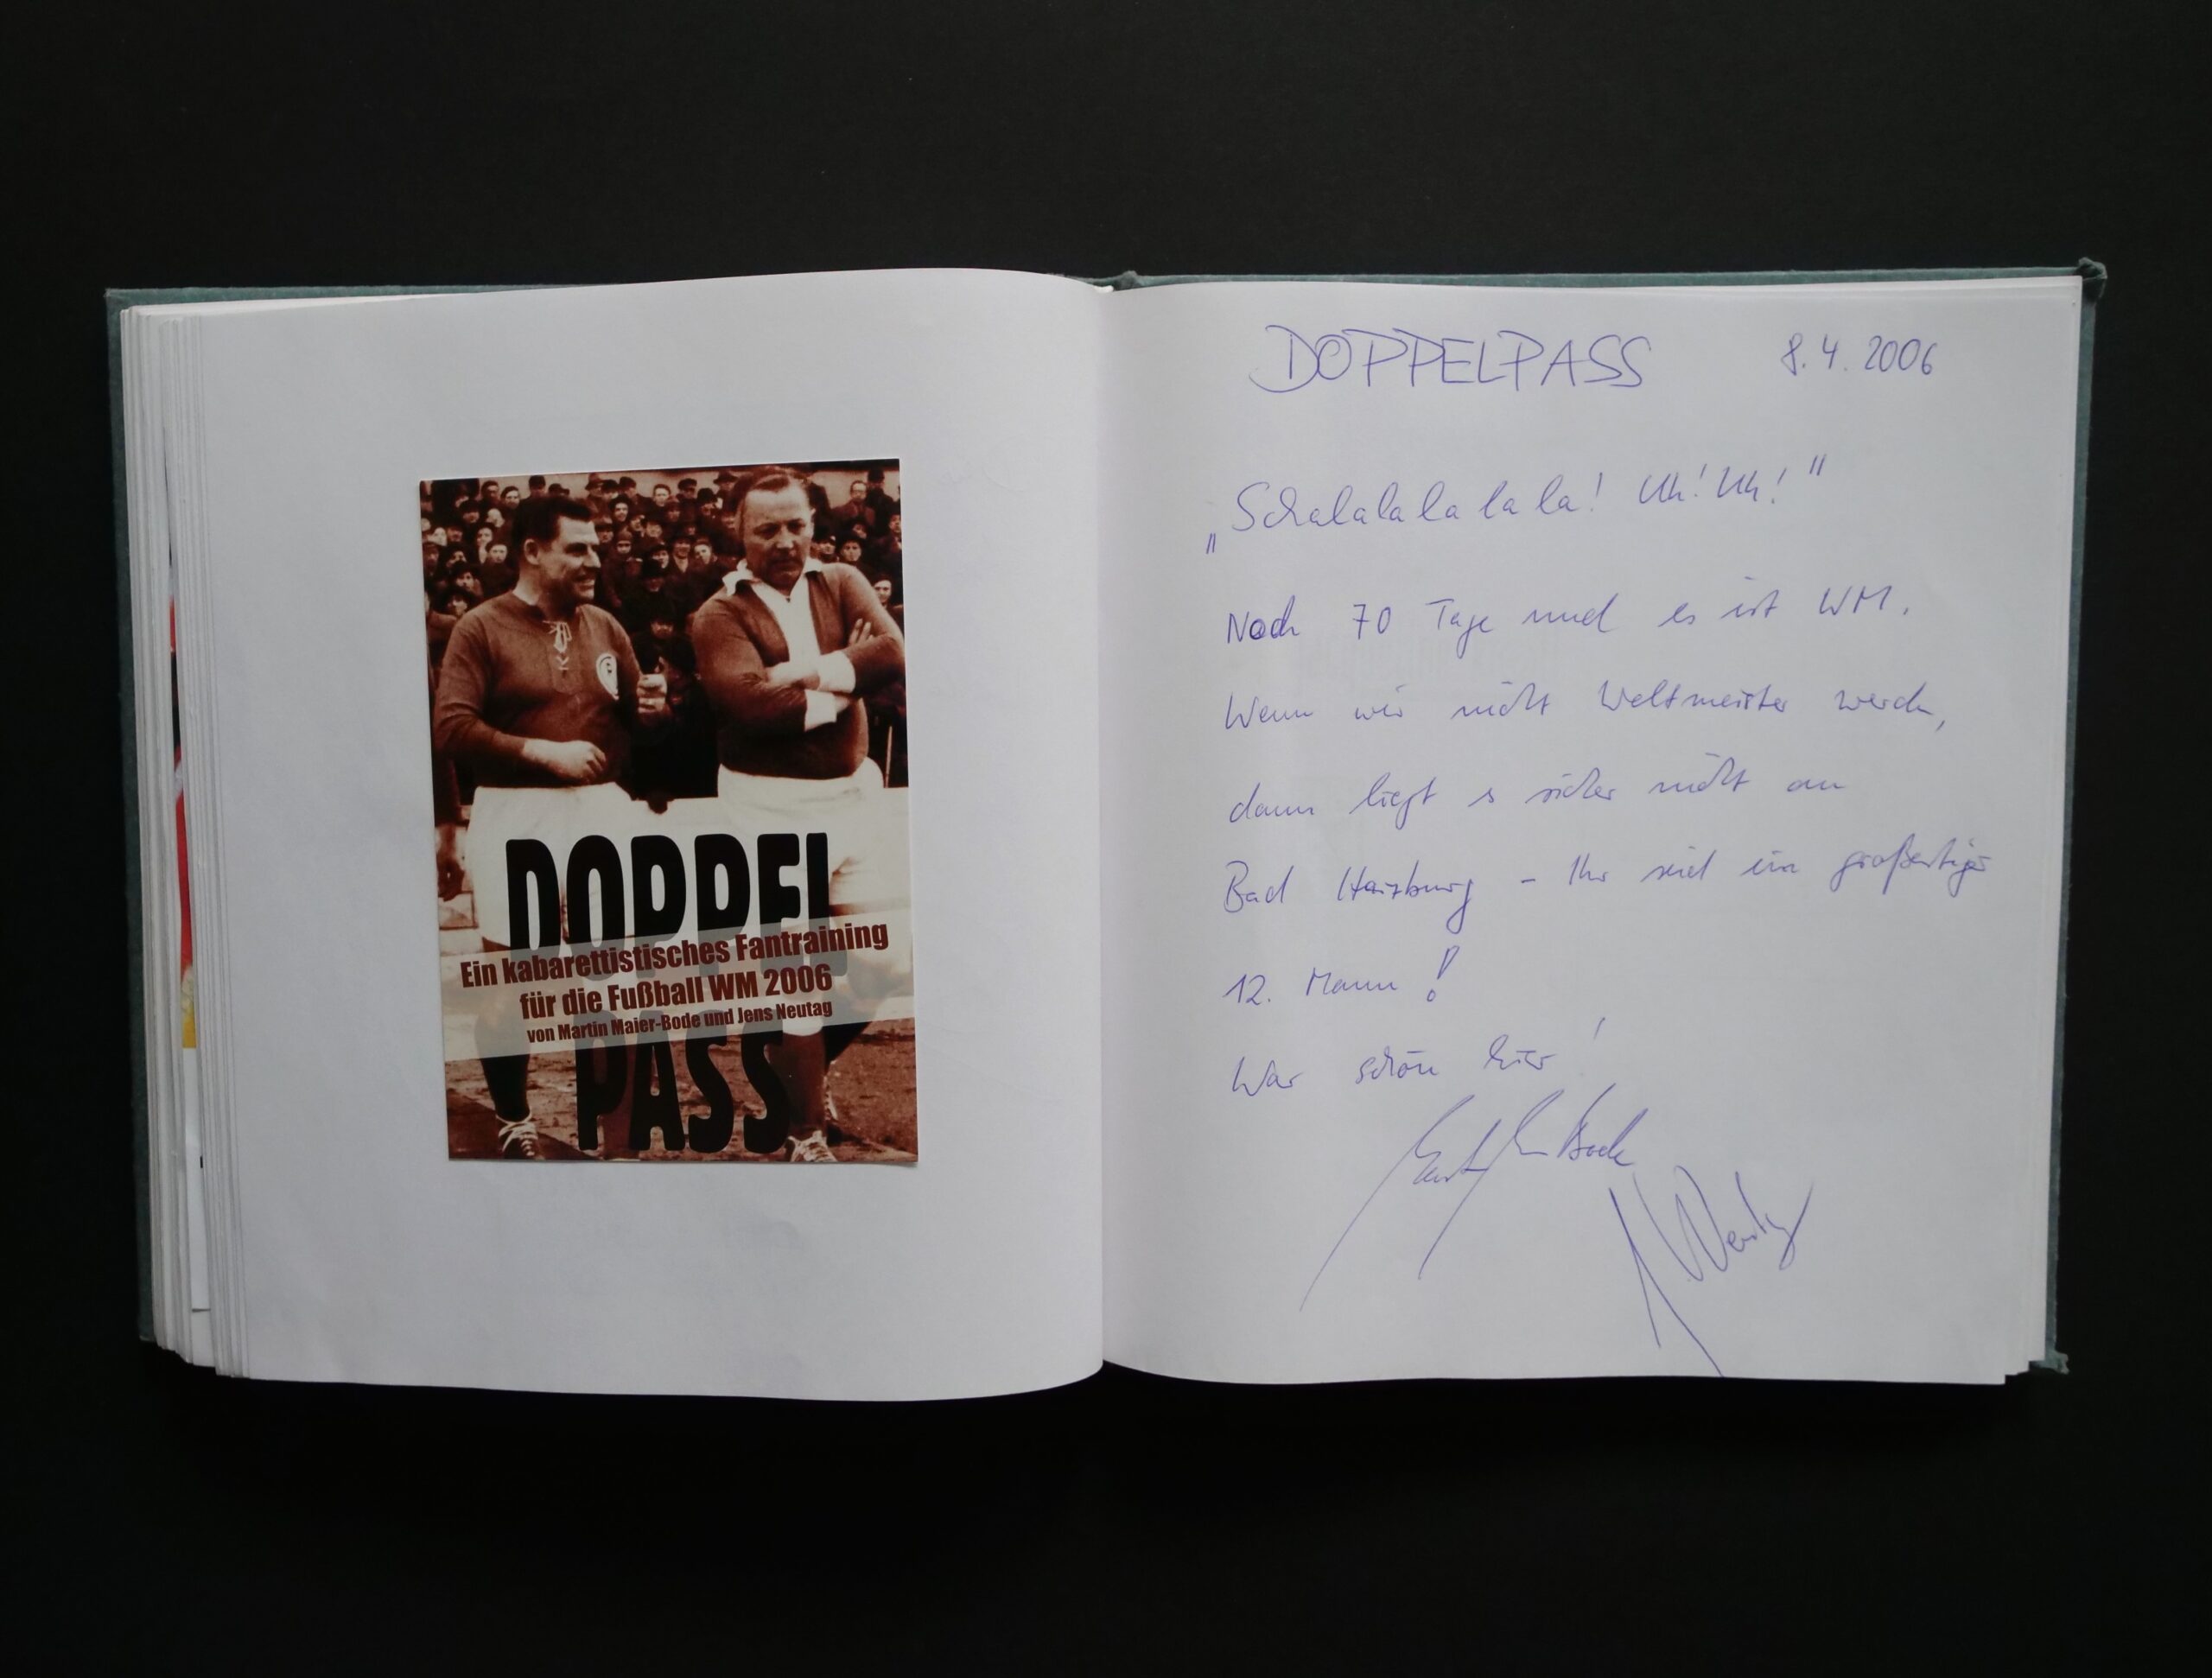 DOPPEL
Ein kabarettistisches Fantraining
für die Fußball WM 2006
von Martin Maier-Bode und Jens Neutag
PASS
DOPPELPASS 8.4.2006
„Schalalalalala! Uh! Uh!"
Noch 70 Tage und es ist WM.
Wenn wir nicht Weltmeister werden,
dann liegt es sicher nicht an
Bad Harzburg - Ihr seid ein großartiger
12. Mann!
War schön hier!